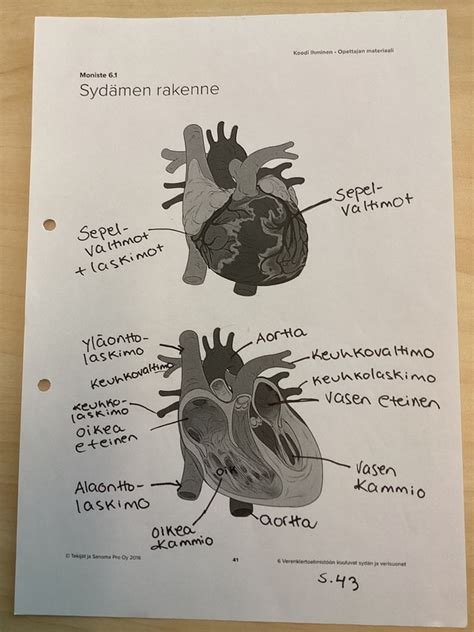 Koodi Ihminen • Opettajan materiaali
Moniste 6.1
Sydämen rakenne
Sepel-
valtimot
Sepel-
valtimot
+ laskimot
Yläontto-
laskimo
Aortta
Keuhkovaltimo
Keuhkovaltimo
Keuhkolaskimo
Keuhko-
laskimo
Vasen eteinen
oikea
eteinen
oik
Vasen
kammio
Alaontto-
laskimo
oikea
kammio
aortta
© Tekijät ja Sanoma Pro Oy 2016
41
6 Verenkiertoelimistöön kuuluvat sydän ja verisuonet
s.43